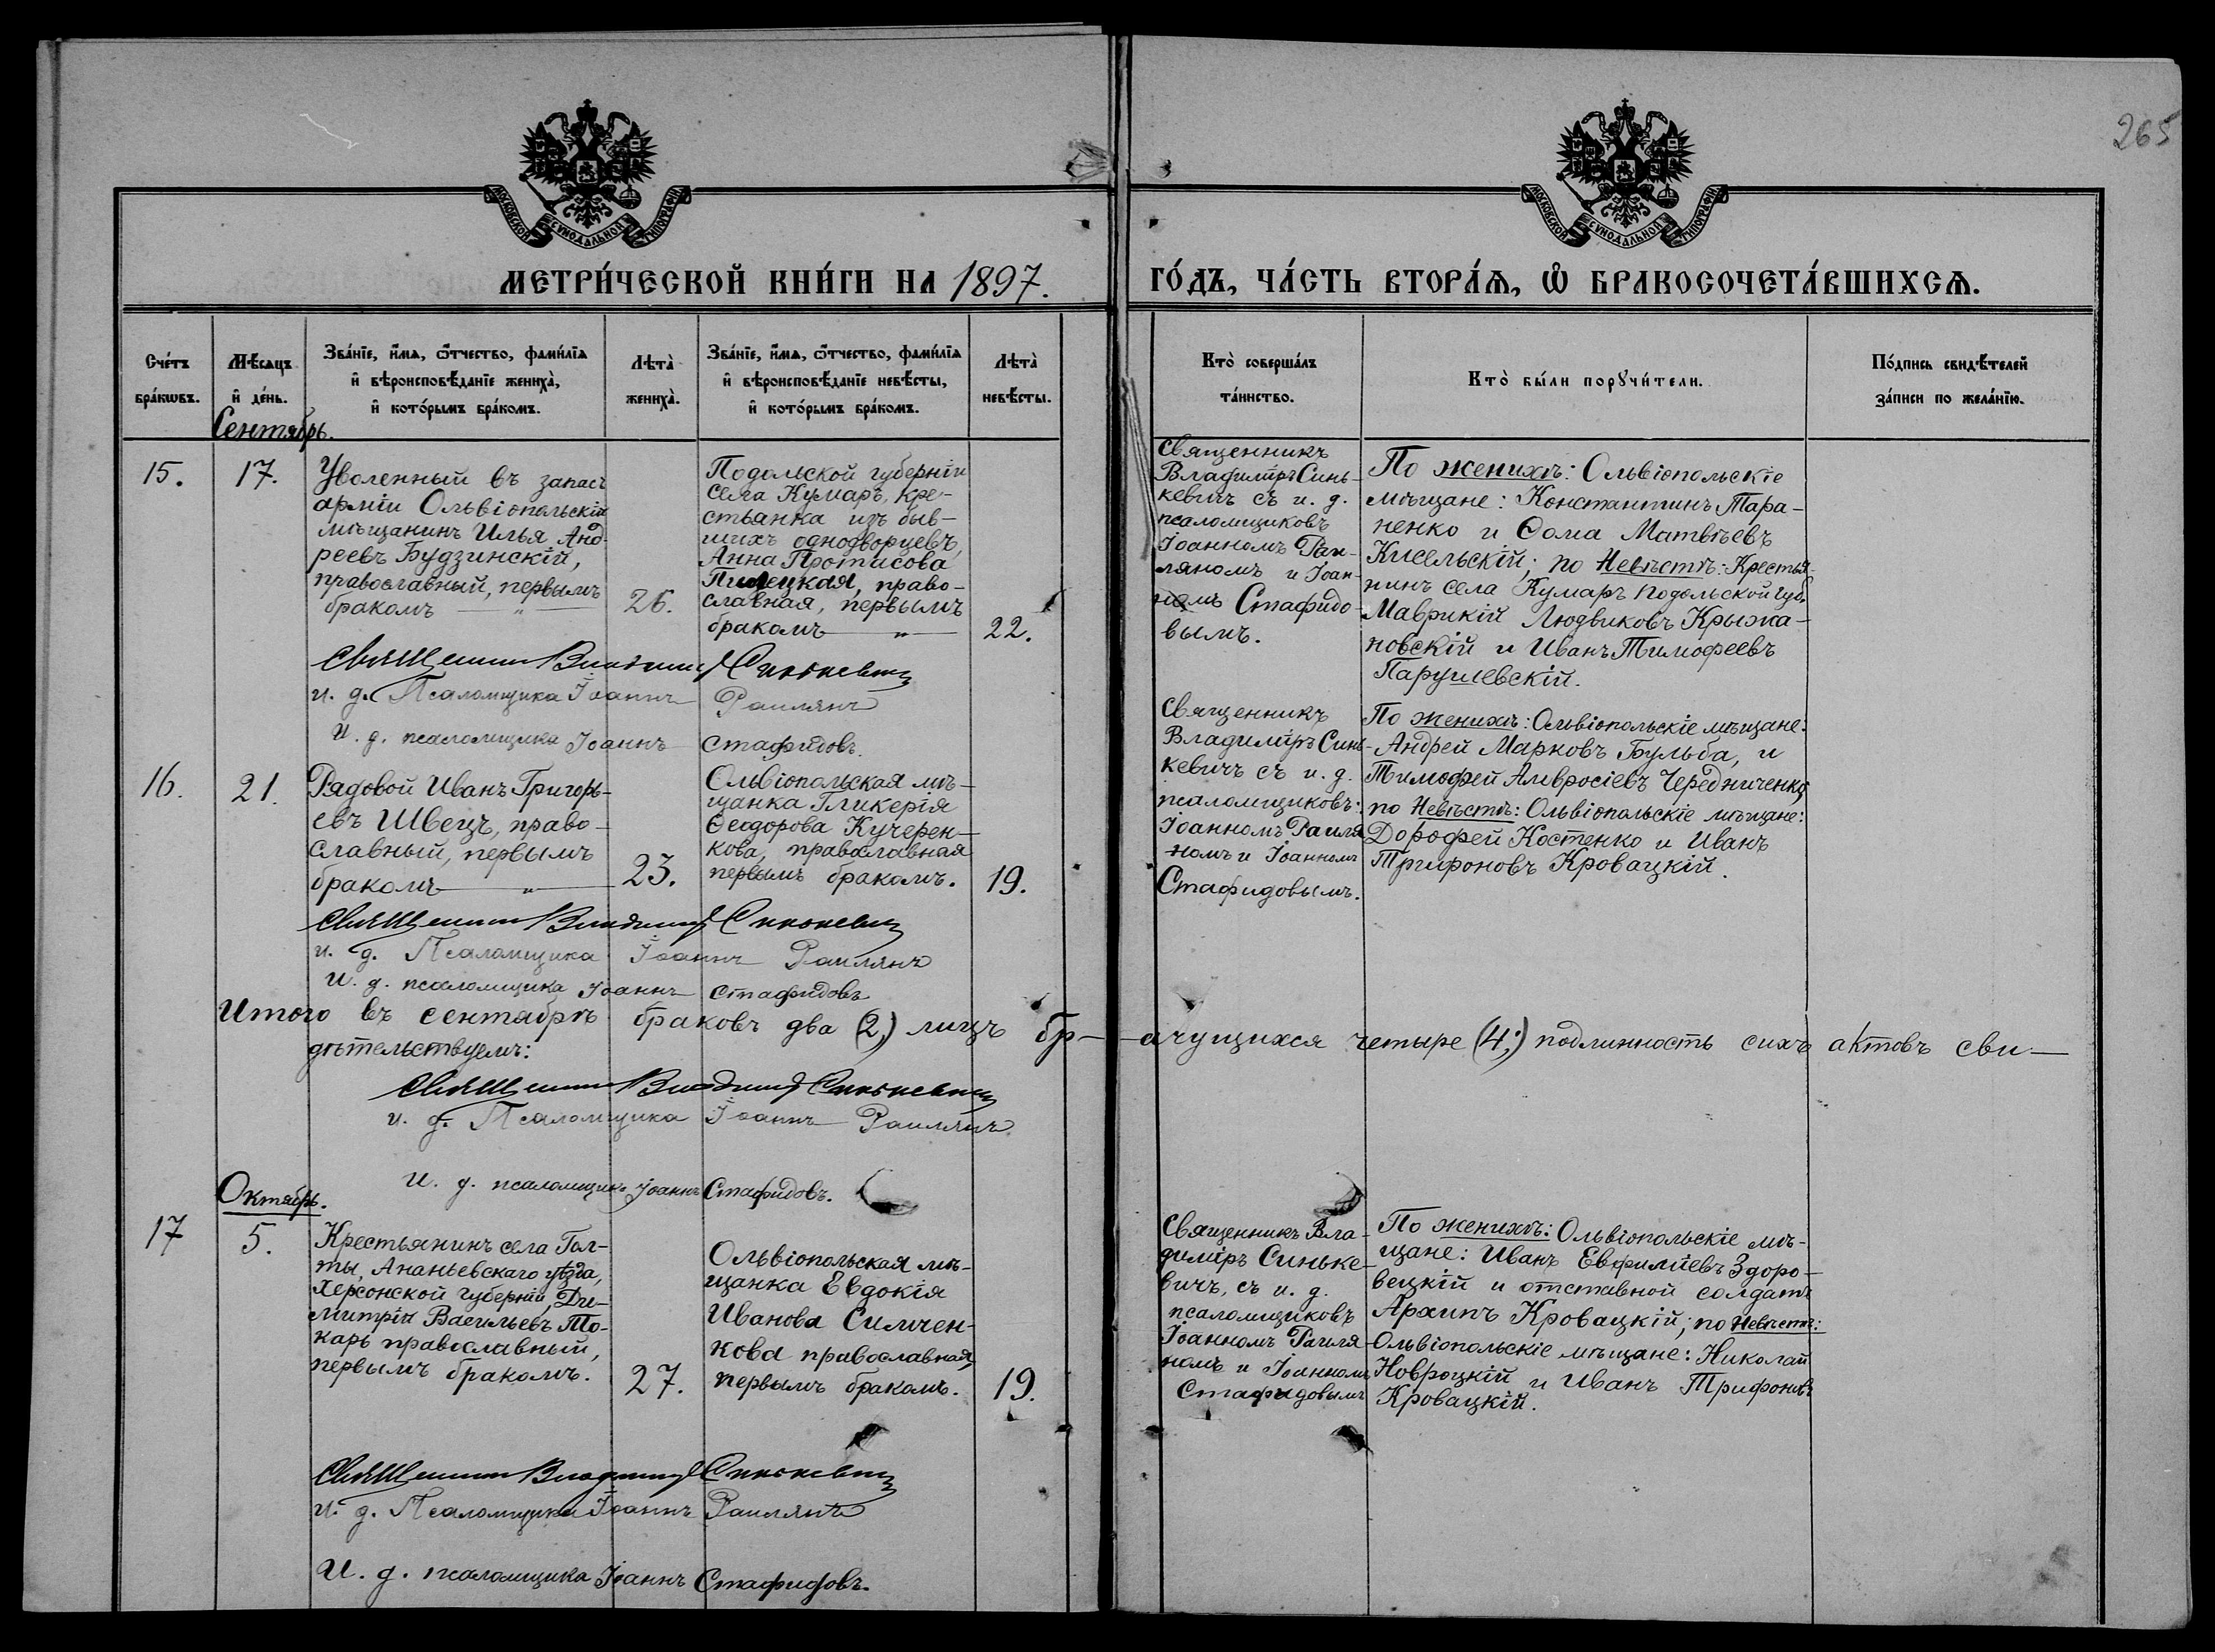 265
МОСКОВСКОЙ СѴНОДАЛЬНОЙ ТИПОГРАФІИ
МОСКОВСКОЙ СѴНОДАЛЬНОЙ ТИПОГРАФІИ
МЕТРИ́ЧЕСКОЙ КНИ́ГИ НА 1897.
ГО́ДЪ, ЧА́СТЬ ВТОРА́Ѧ, Ѽ БРАКОСОЧЕТА́ВШИХСѦ.
Сче́тъ
бра́кѡвъ.
Мѣ́сѧцъ
и҆ де́нь.
Зва́нїе, и҆́мѧ, ѻ҆́тчество, фами́лїѧ
и҆ вѣроисповѣ́данїе жениха̀,
и҆ кото́рымъ бра́комъ.
Лѣта̀
жениха̀.
Зва́нїе, и҆́мѧ, ѻ҆́тчество, фами́лїѧ
и҆ вѣроисповѣ́данїе невѣ́сты,
и҆ кото́рымъ бра́комъ.
Лѣта̀
невѣ́сты.
Кто̀ соверша́лъ
та́инство.
Кто̀ бы́ли порꙋчи́тели.
По́дпись свидѣ́телей
за́писи по жела́нїю.
Сентябрь.
15.
17.
Уволенный въ запасъ
арміи Ольвіопольскій
мѣщанинъ Илья Анд-
реевъ Будзинскій,
православный, первымъ
бракомъ — „ —
26.
Подольской губерніи
села Кумаръ, кре-
стьянка изъ быв-
шихъ однодворцевъ,
Анна Протасова
Пилецкая, право-
славная, первымъ
бракомъ — „ —
22.
Священникъ
Владиміръ Синь-
кевичъ съ и. д.
псаломщиковъ
Іоанномъ Раи-
ляномъ и Іоан-
номъ Стафидо-
вымъ.
По женихѣ: Ольвіопольскіе
мѣщане: Константинъ Тара-
ненко и Ѳома Матвѣевъ
Кисельскій; по Невѣстѣ: Крестья-
нинъ села Кумаръ Подольской губ.
Маврикій Людвиковъ Крыжа-
новскій и Иванъ Тимофеевъ
Парушевскій.
Священникъ Владиміръ Синькевичъ
и. д. Псаломщика Іоаннъ Раилянъ
И. д. псаломщика Іоаннъ Стафидовъ.
16.
21.
Рядовой Иванъ Григорь-
евъ Швецъ, право-
славный, первымъ
бракомъ — „ —
23.
Ольвіопольская мѣ-
щанка Гликерія
Ѳеодорова Кучерен-
кова, православная
первымъ бракомъ.
19.
Священникъ
Владиміръ Синь-
кевичъ съ и. д.
псаломщиковъ:
Іоанномъ Раиля-
номъ и Іоанномъ
Стафидовымъ.
По женихѣ: Ольвіопольскіе мѣщане:
Андрей Марковъ Бульба, и
Тимофей Амвросіевъ Чередниченко,
по Невѣстѣ: Ольвіопольскіе мѣщане:
Дорофей Костенко и Иванъ
Трифоновъ Кровацкій.
Священникъ Владиміръ Синькевичъ
и. д. Псаломщика Іоаннъ Раилянъ
И. д. псаломщика Іоаннъ Стафидовъ
Итого въ сентябрѣ браковъ два (2,) лицъ бр- -ачущихся четыре (4;) подлинность сихъ актовъ сви-
дѣтельствуемъ:
Священникъ Владиміръ Синькевичъ
и. д. Псаломщика Іоаннъ Раилянъ
И. д. псаломщика Іоаннъ Стафидовъ.
Октябрь.
17
5.
Крестьянинъ села Гол-
ты, Ананьевскаго уѣзда,
Херсонской губерніи, Ди-
митрій Васильевъ То-
карь православный,
первымъ бракомъ.
27.
Ольвіопольская мѣ-
щанка Евдокія
Иванова Симчен-
кова православная,
первымъ бракомъ.
19.
Священникъ Вла-
диміръ Синьке-
вичъ, съ и. д.
псаломщиковъ
Іоанномъ Раиля-
номъ и Іоанномъ
Стафидовымъ
По женихѣ: Ольвіопольскіе мѣ-
щане: Иванъ Евфиміевъ Здоро-
вецкій и отставной солдатъ
Архипъ Кровацкій; по Невѣстѣ:
Ольвіопольскіе мѣщане: Николай
Новроцкій и Иванъ Трифоновъ
Кровацкій.
Священникъ Владиміръ Синькевичъ
и. д. Псаломщика Іоаннъ Раилянъ
И. д. псаломщика Іоаннъ Стафидовъ.